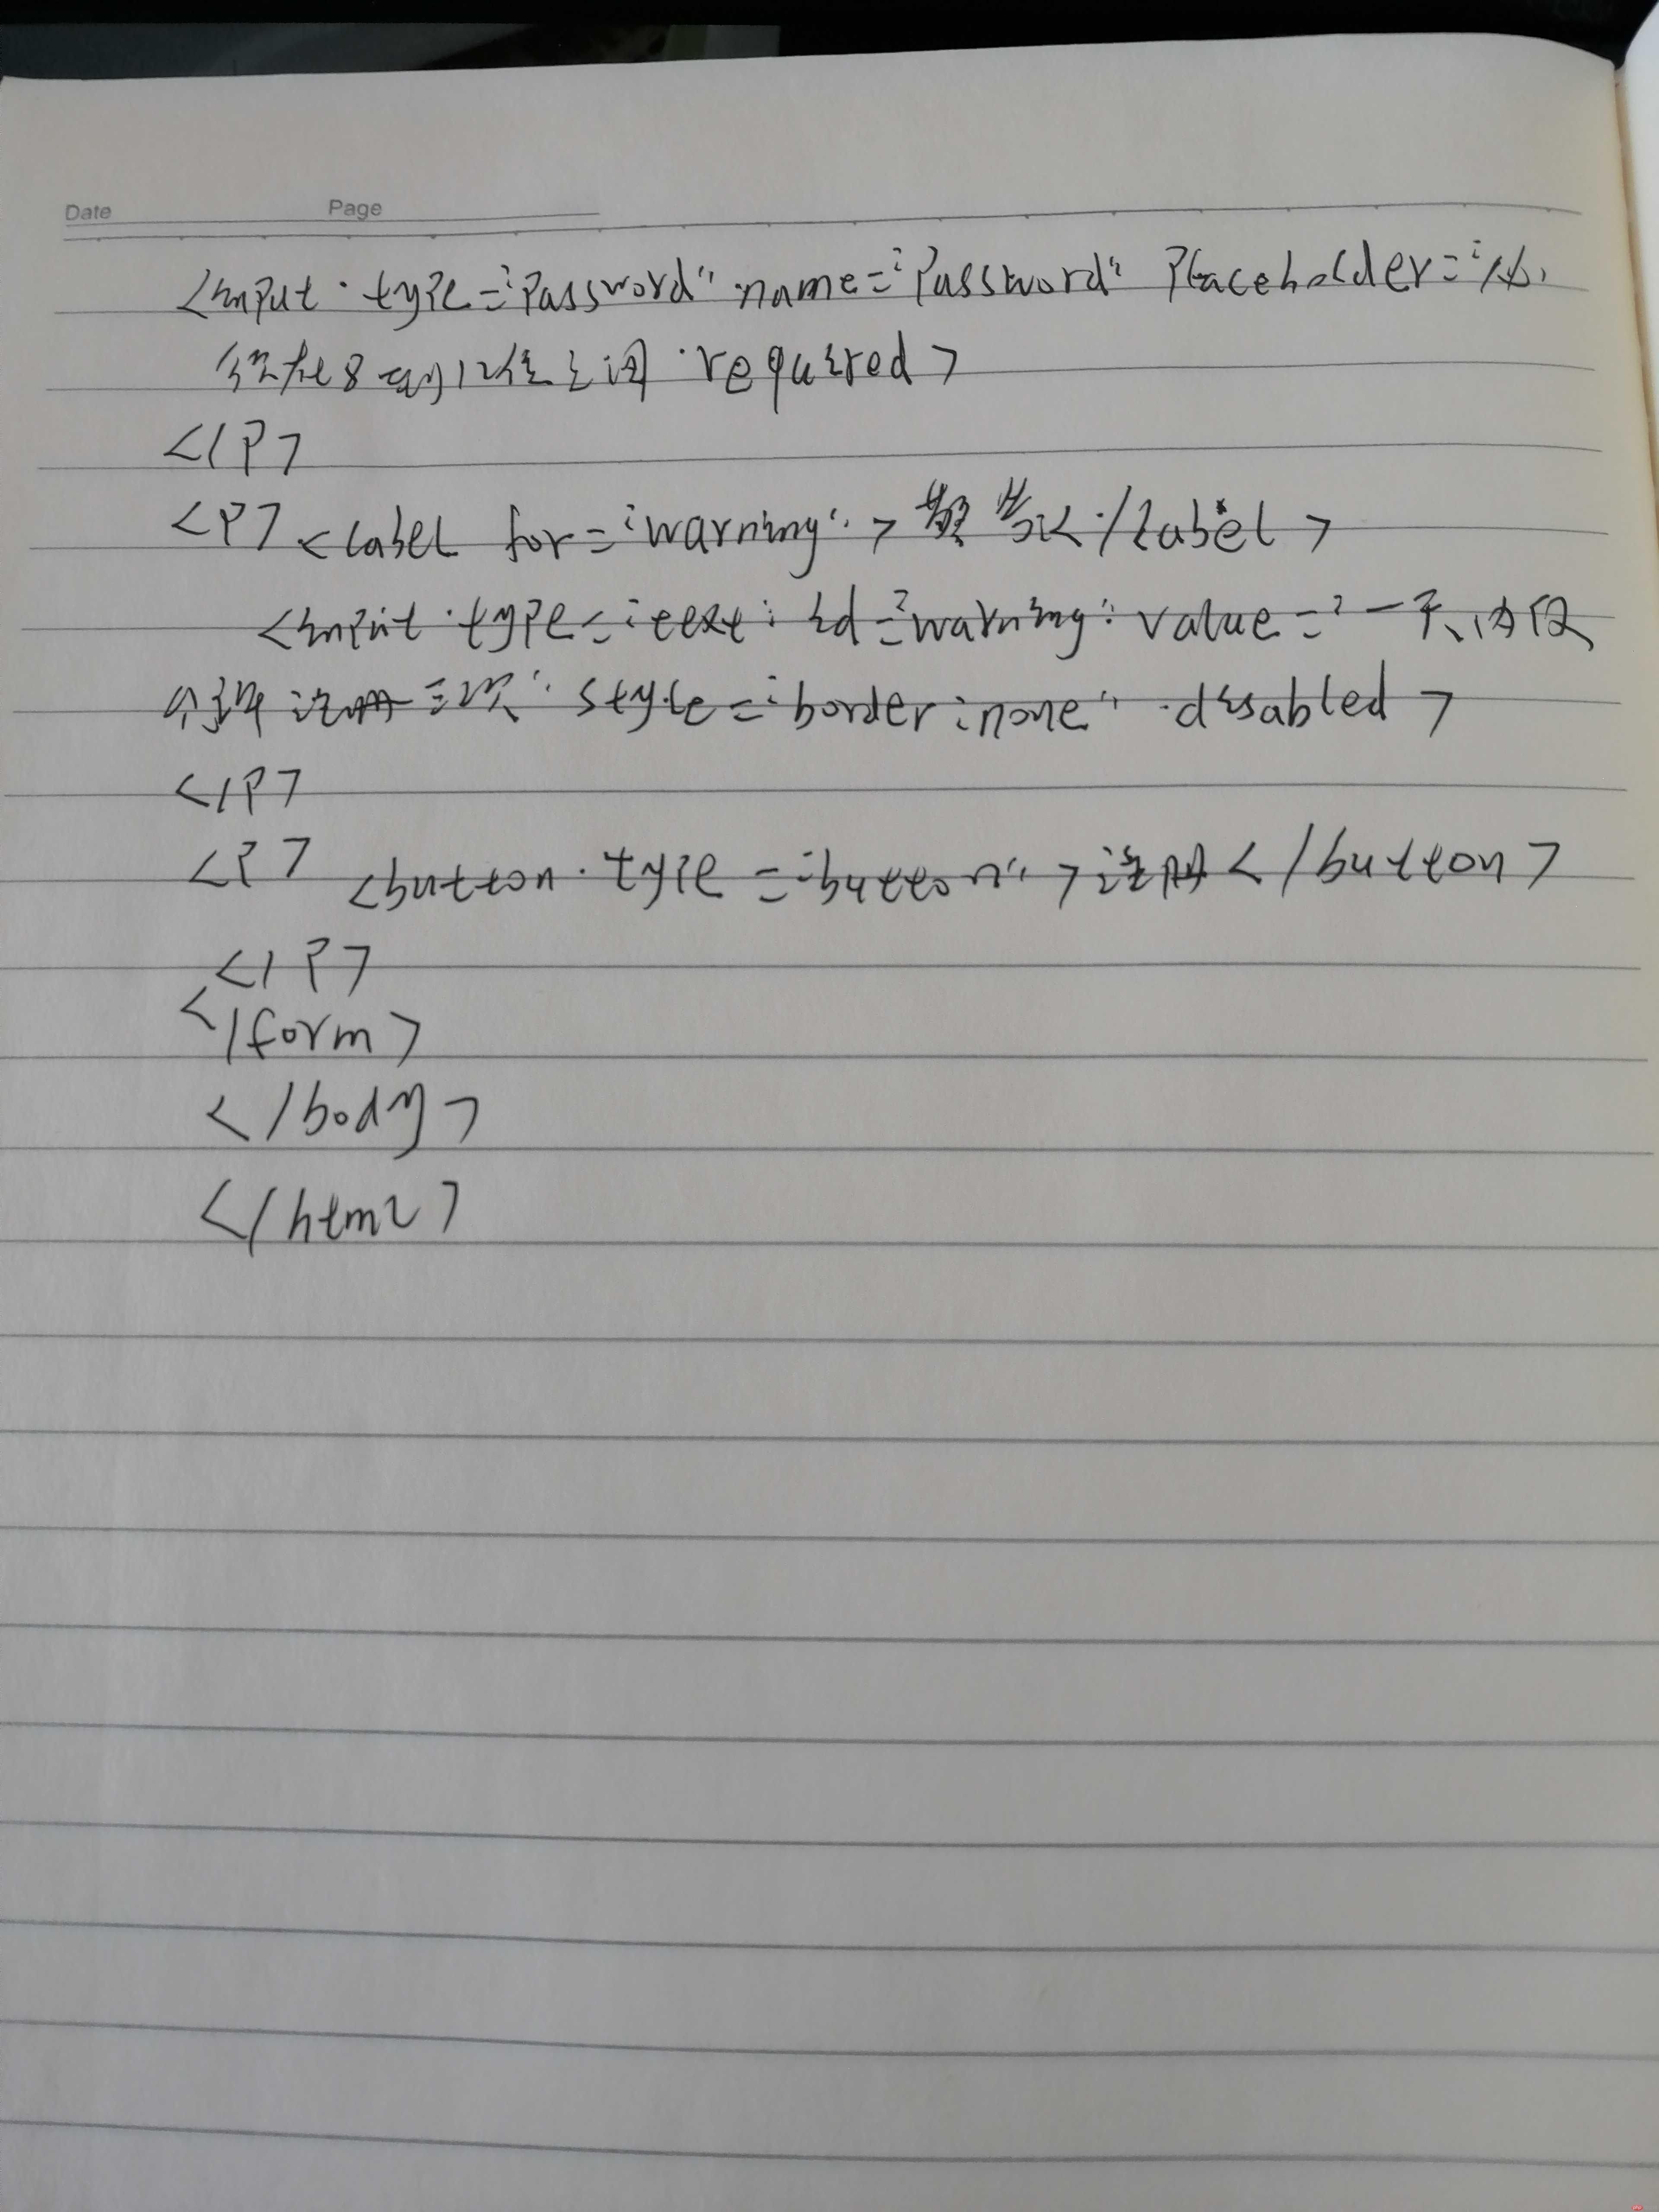 Date Page
<input type="password" name="password" placeholder="必
须在8到12位之间 required>
</P>
<P> <label for="warning"> 警告</label>
<input type="text" id="warning" value="一天内仅
允许注册三次" style="border:none" disabled>
</P>
<P> <button type="button">注册</button>
</P>
</form>
</body>
</html>